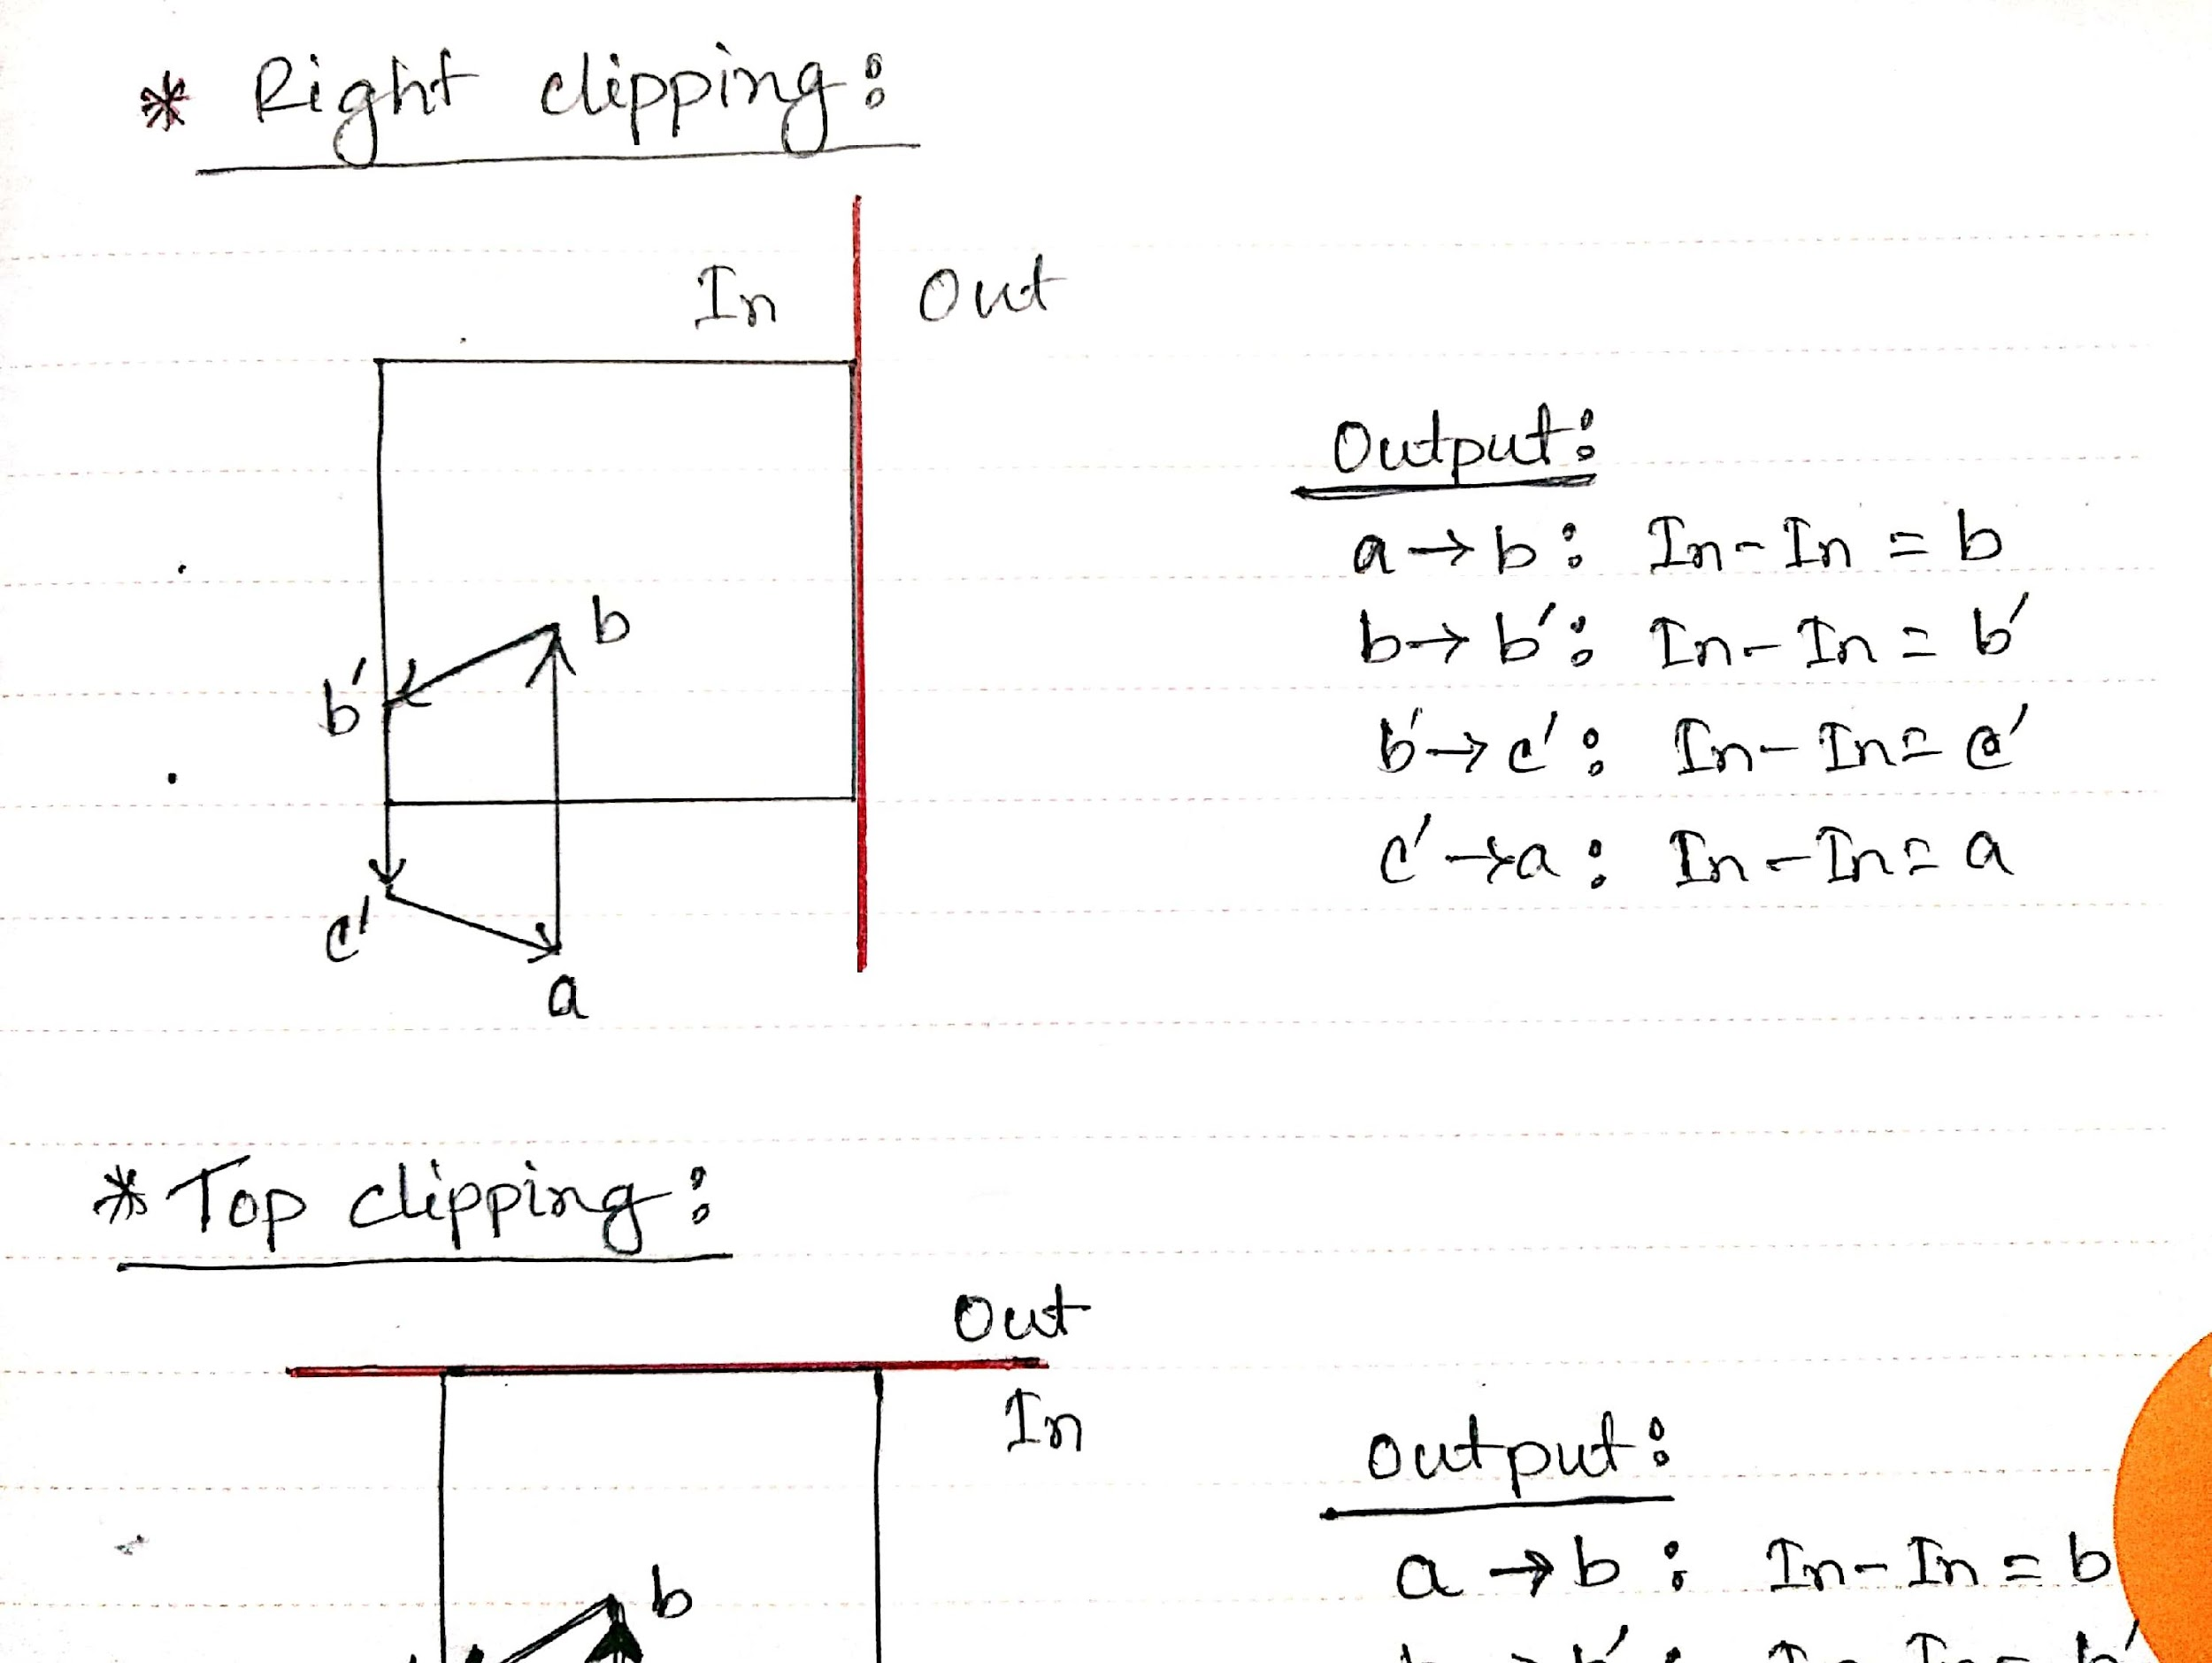 * Right clipping:
In Out
Output:
a → b : In - In = b
b → b' : In - In = b'
b' → c' : In - In = c'
c' → a : In - In = a
b
b'
c'
a
* Top clipping:
Out
In
output:
a → b : In - In = b
b
b → b' : In - In = b'